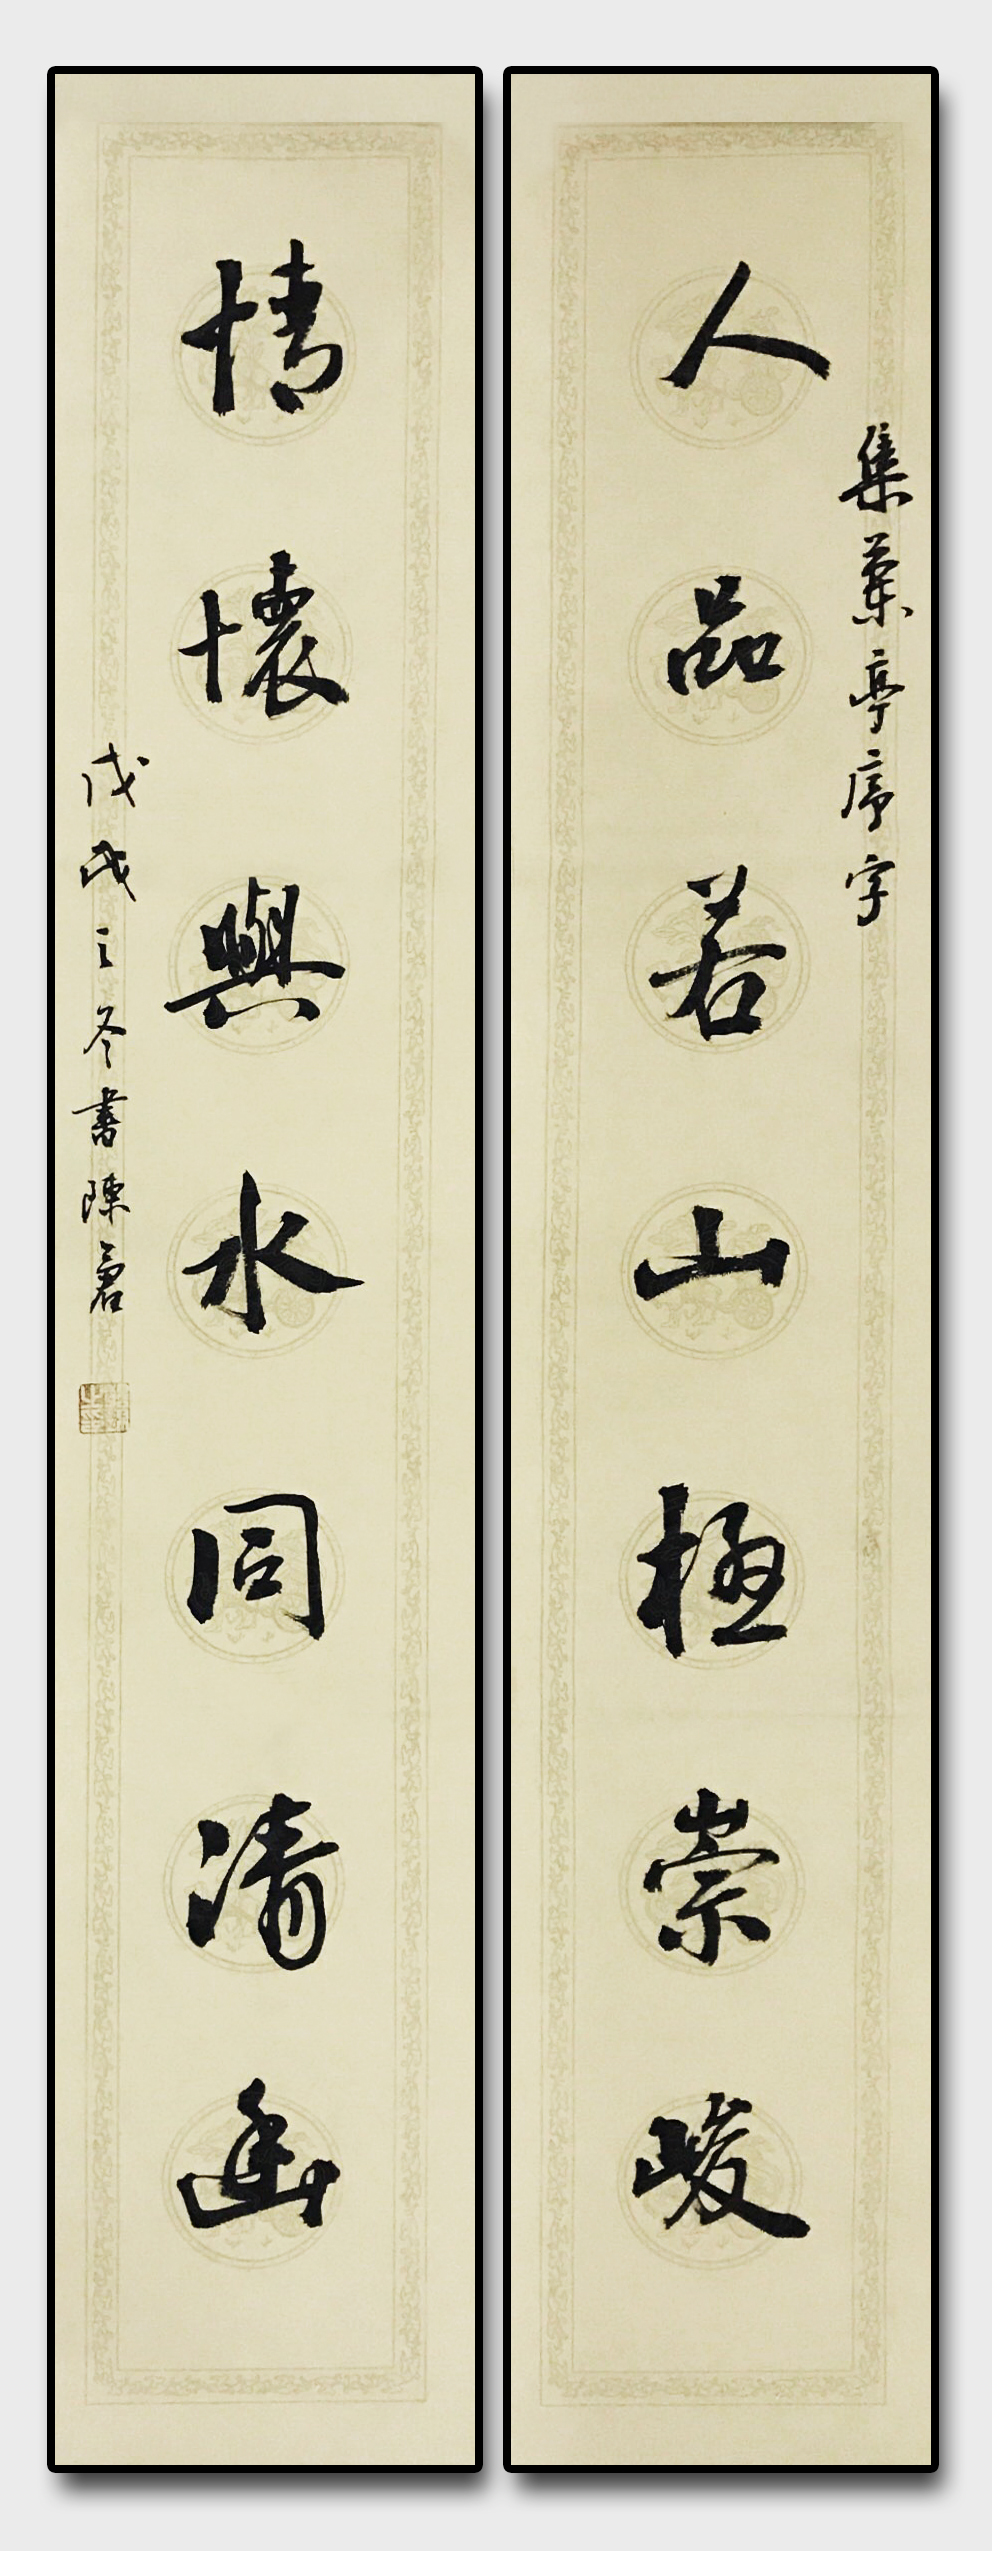 集蘭亭序字
人品若山極崇峻
情懷與水同清幽
戊戌之冬書陳